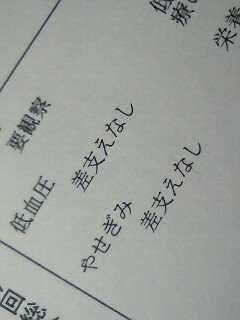 要観察
低血圧
差支えなし
やせぎみ
差支えなし
栄養
回総